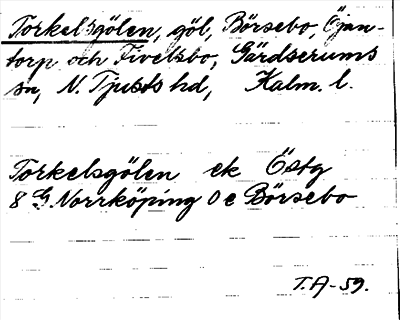 Torkelsgölen, göl, Börsebo, Öjan-
torp och Fivelsbo, Gärdserums
sn, N. Tjusts hd, Kalm. l.
Torkelsgölen ek Östg
8 G Norrköping 0 e Börsebo
T.A-59.